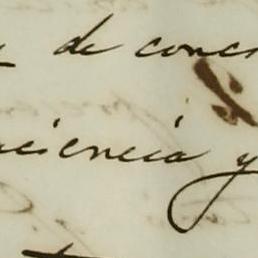 de conc
ciencia y